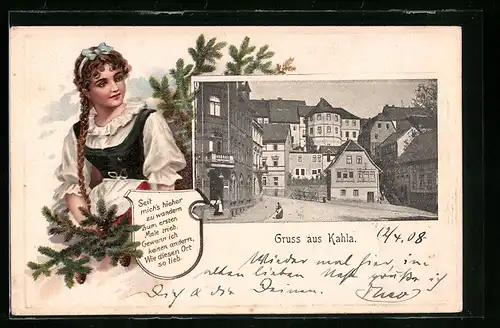 Seit
mich's hieher
zu wandern
zum ersten
Male trieb,
Gewann ich
keinen andern,
Wie diesen Ort
so lieb.
Gruss aus Kahla.
12/4.08
Wieder mal hier, im
alten lieben Nest grüße ich
Dich & die Deinen.